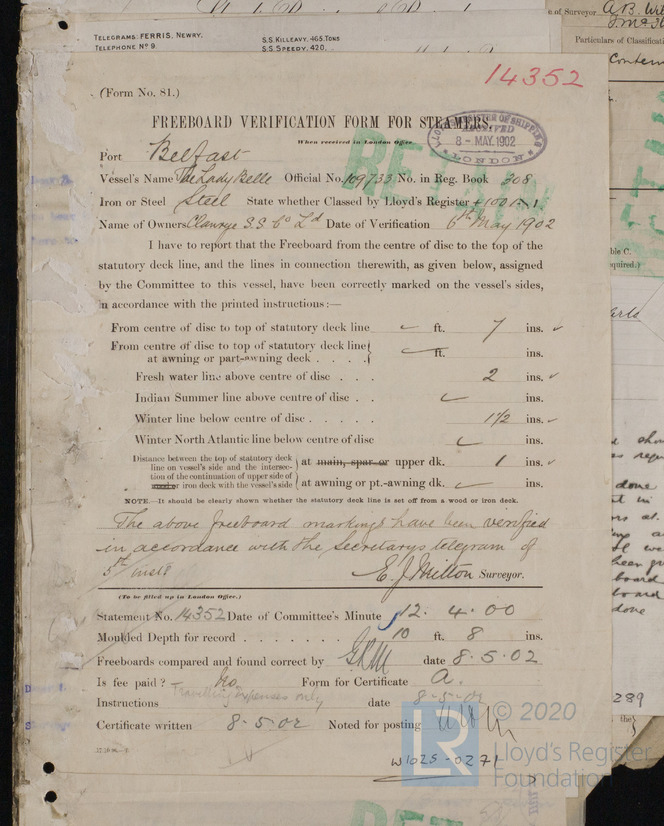 TELEGRAMS: FERRIS, NEWRY.
TELEPHONE Nº 9.
S.S. KILLEAVY, 465 TONS
S.S. SPEEDY, 420.
of Surveyor
Particulars of Classificati
14352
(Form No. 81.)
FREEBOARD VERIFICATION FORM FOR STEAMERS.
When received in London Office
LLOYD'S REGISTER OF SHIPPING
RECEIVED
8-MAY.1902
LONDON
Port Belfast
Vessel's Name The Lady Belle Official No. 109733 No. in Reg. Book 308
Iron or Steel Steel State whether Classed by Lloyd's Register +100A1
Name of Owners Clanrye S.S Co Ld Date of Verification 6th May 1902
I have to report that the Freeboard from the centre of disc to the top of the
statutory deck line, and the lines in connection therewith, as given below, assigned
by the Committee to this vessel, have been correctly marked on the vessel's sides,
in accordance with the printed instructions:—
From centre of disc to top of statutory deck line ft. 7 ins.
From centre of disc to top of statutory deck line
at awning or part-awning deck . . . . ft. ins.
Fresh water line above centre of disc . . . 2 ins.
Indian Summer line above centre of disc . . ins.
Winter line below centre of disc . . . . . 1 1/2 ins.
Winter North Atlantic line below centre of disc ins.
Distance between the top of statutory deck
line on vessel's side and the intersec-
tion of the continuation of upper side of
iron deck with the vessel's side
at main, spar or upper dk. 1 ins.
at awning or pt.-awning dk. ins.
NOTE.—It should be clearly shown whether the statutory deck line is set off from a wood or iron deck.
The above freeboard markings have been verified
in accordance with the Secretarys telegram of
5th inst
E. J. Milton Surveyor.
(To be filled up in London Office.)
Statement No. 14352 Date of Committee's Minute 12. 4. 00
Moulded Depth for record . . . . . . . 10 ft. 8 ins.
Freeboards compared and found correct by date 8.5.02
Is fee paid? No. Form for Certificate A.
Travelling Expenses only
Instructions date 8-5-02
Certificate written 8.5.02 Noted for posting
W1025-0271
© 2020
LR
Lloyd's Register
Foundation